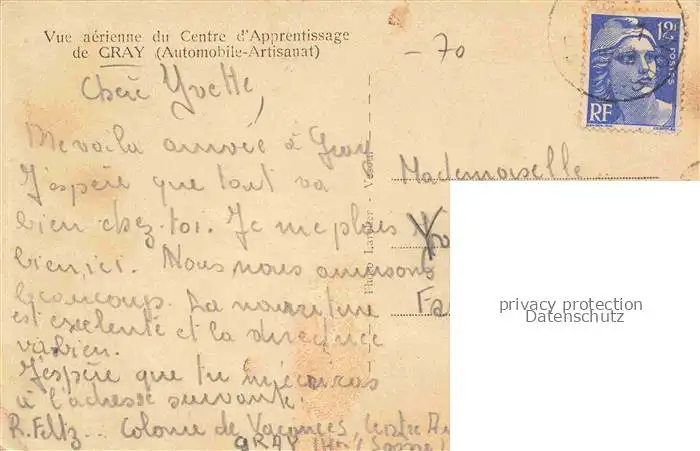 Vue aérienne du Centre d'Apprentissage
de GRAY (Automobile-Artisanat)
- 70
12F
POSTES
RF
Chère Yvette,
Me voila arrivée à Gray
J'espère que tout va
bien chez-toi. Je me plais
bien, ici. Nous nous amusons
beaucoup. La nourriture
est excelente et la directrice
va bien.
J'espère que tu m'écriras
à l'adresse suivante:
R. Feltz... Colonie de Vacances, Centre
GRAY (Hte Saône)
Photo Lardier - Vesoul
Mademoiselle
privacy protection
Datenschutz